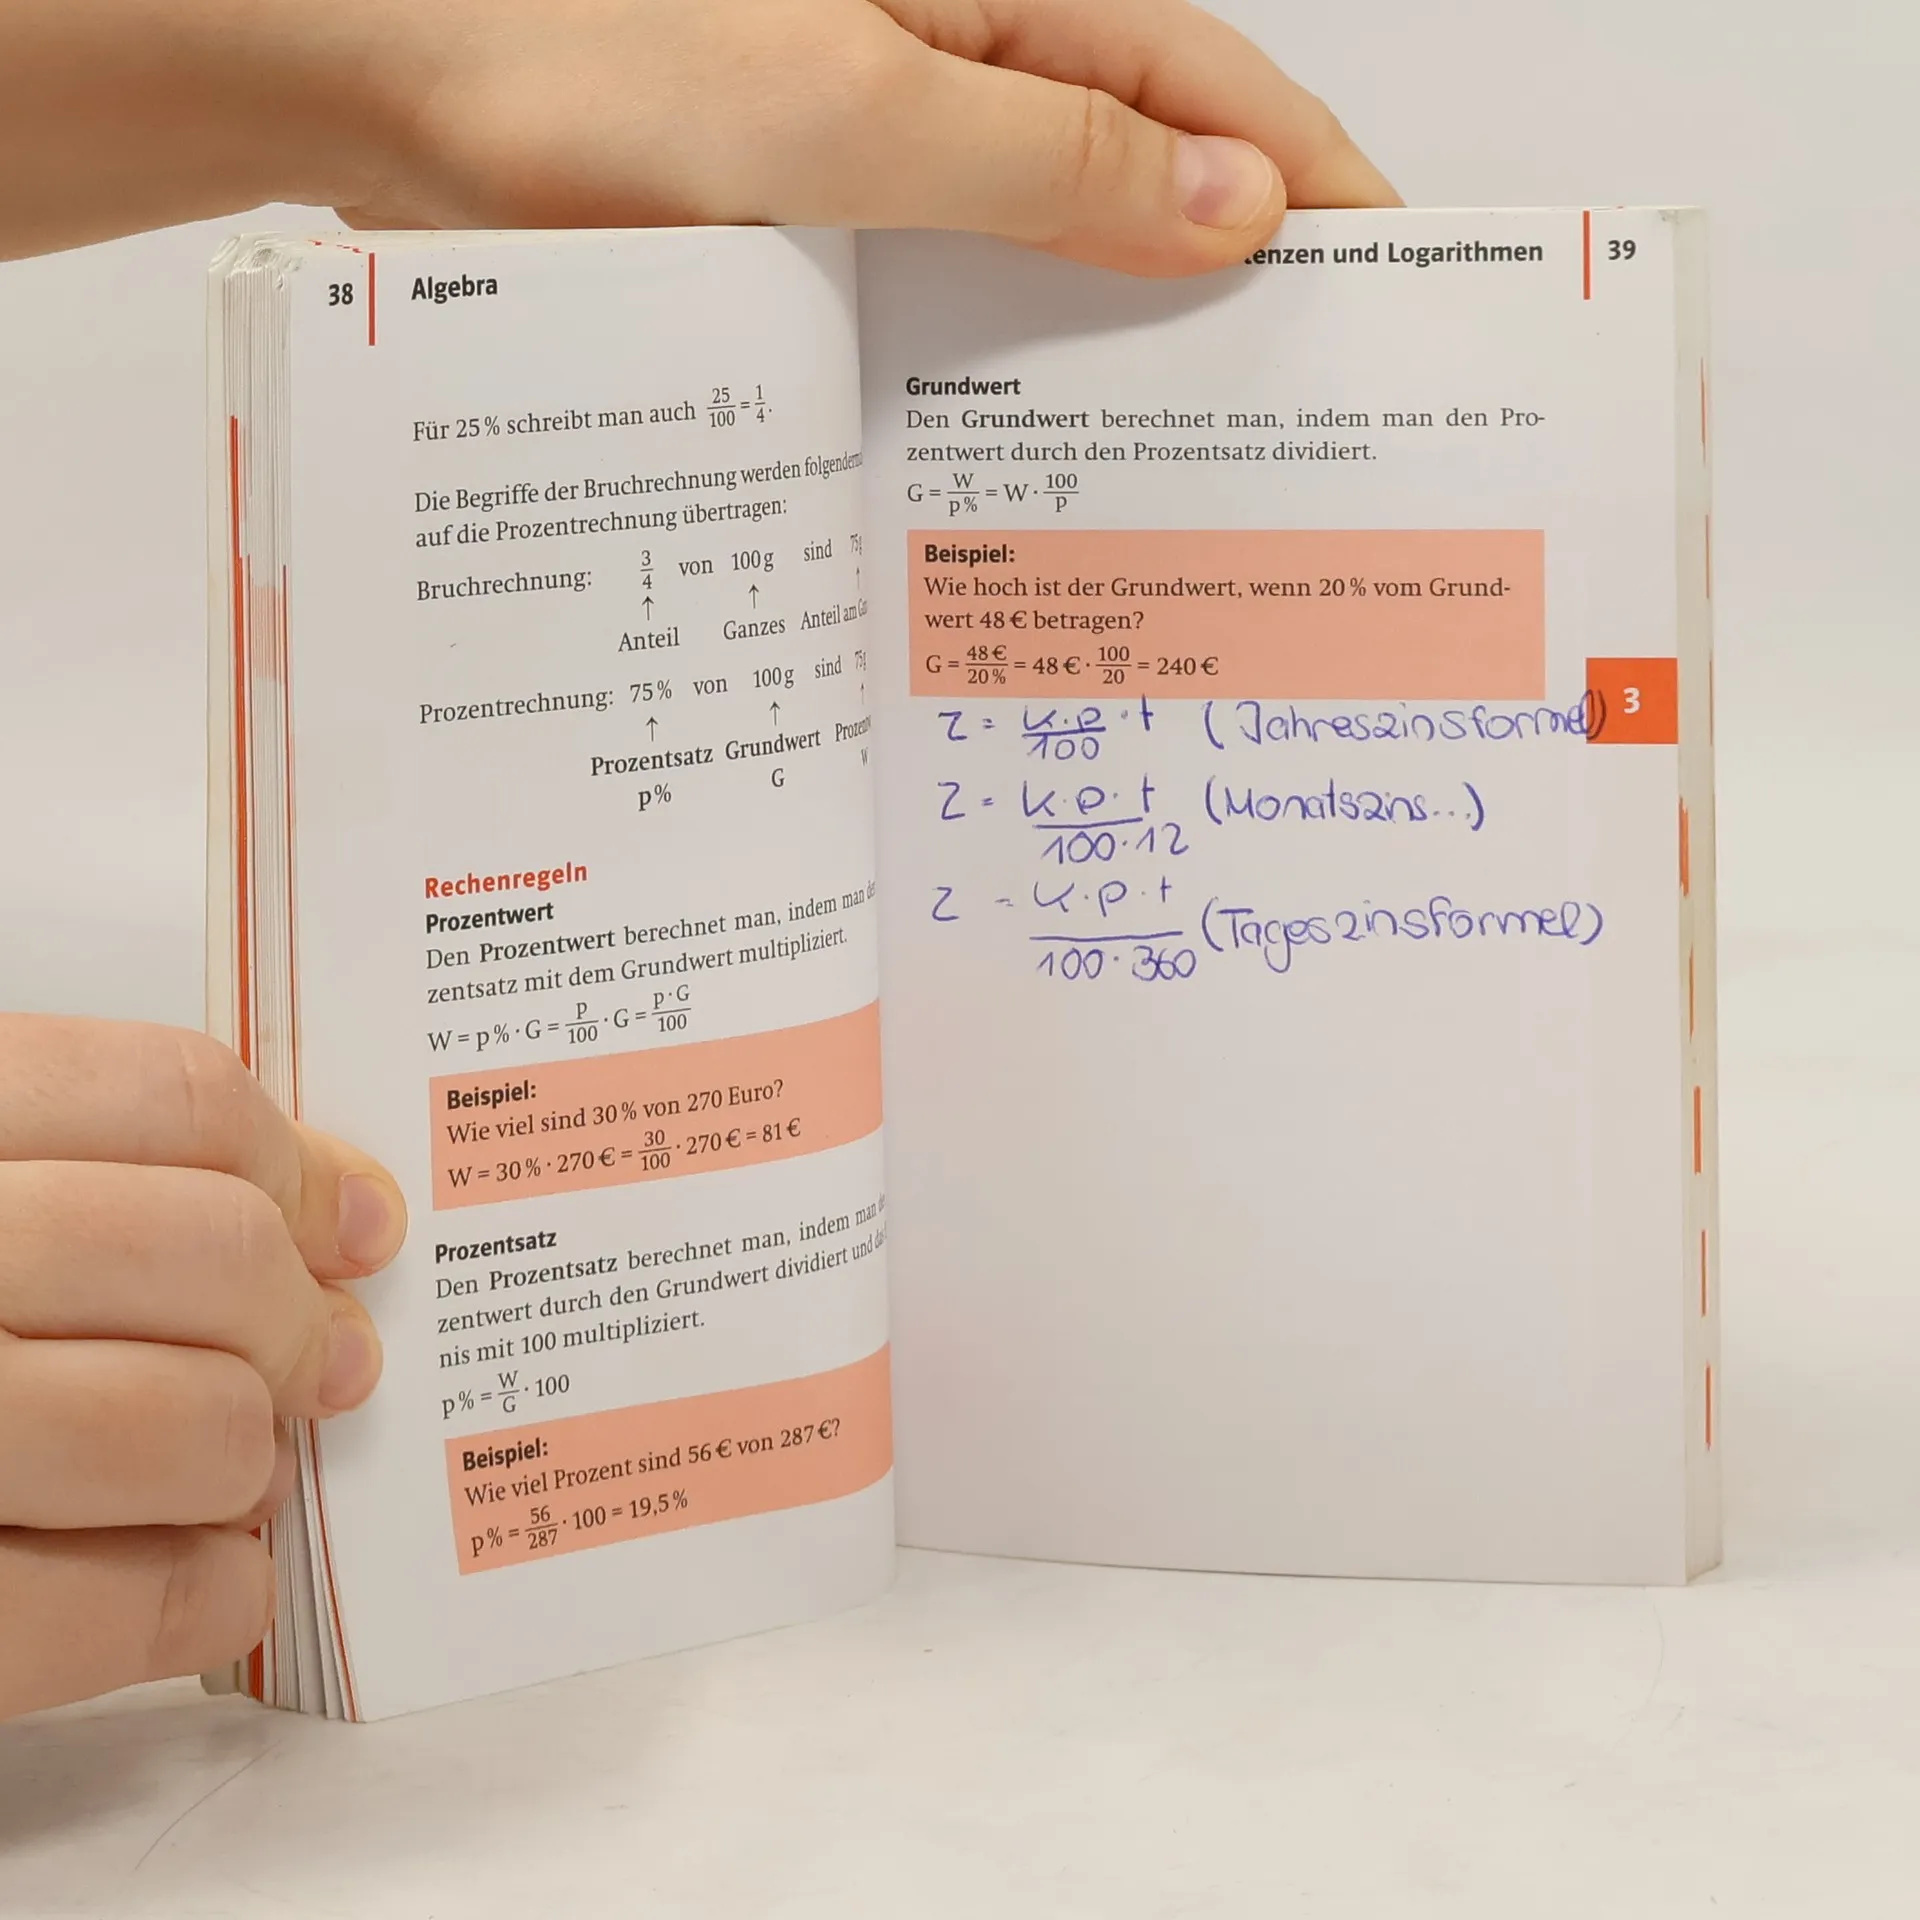 38 Algebra
Für 25 % schreibt man auch 25/100 = 1/4.
Die Begriffe der Bruchrechnung werden
auf die Prozentrechnung übertragen:
Bruchrechnung: 3/4 von 100 g sind 75 g
↑ ↑ ↑
Anteil Ganzes Anteil am
Prozentrechnung: 75 % von 100 g sind 75 g
↑ ↑ ↑
Prozentsatz Grundwert
p% G W
Rechenregeln
Prozentwert
Den Prozentwert berechnet man, indem man
zentsatz mit dem Grundwert multipliziert.
W = p % · G = p/100 · G = p · G/100
Beispiel:
Wie viel sind 30 % von 270 Euro?
W = 30 % · 270 € = 30/100 · 270 € = 81 €
Prozentsatz
Den Prozentsatz berechnet man, indem man
zentwert durch den Grundwert dividiert und
nis mit 100 multipliziert.
p % = W/G · 100
Beispiel:
Wie viel Prozent sind 56 € von 287 €?
p % = 56/287 · 100 = 19,5 %
und Logarithmen 39
Grundwert
Den Grundwert berechnet man, indem man den Pro-
zentwert durch den Prozentsatz dividiert.
G = W/p % = W · 100/p
Beispiel:
Wie hoch ist der Grundwert, wenn 20 % vom Grund-
wert 48 € betragen?
G = 48 €/20 % = 48 € · 100/20 = 240 €
3
Z = K·p/100 · t (Jahreszinsformel)
Z = K·p·t/100·12 (Monatszins...)
Z = K·p·t/100·360 (Tageszinsformel)